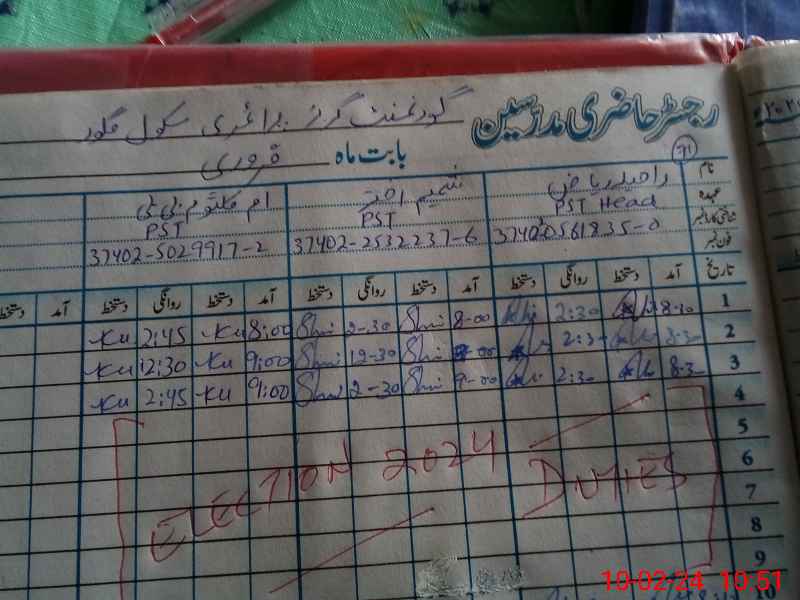 رجسٹر حاضری مدرسین گورنمنٹ گرلز پرائمری سکول
بابت ماہ فروری
نام راحیلہ ریاض شمیم اختر ام کلثوم بی بی
عہدہ PST Head PST PST
شناختی کارڈ نمبر 37402-0561835-0 37402-2532237-6 37402-5029917-2
فون نمبر
تاریخ آمد دستخط روانگی دستخط آمد دستخط روانگی دستخط آمد دستخط روانگی دستخط آمد دستخط
1 8-30 2:30 8-00 Shi 2-30 Shi 8:00 Ku 2:45 Ku
2 8-30 2:3 Shi 12-30 Shi 9:00 Ku 12:30 Ku
3 8-30 2:30 9-00 Shi 2-30 Shi 9:00 Ku 2:45 Ku
4
5
6
7
8
9
ELECTION 2024 DUTIES
10-02-24 10:51